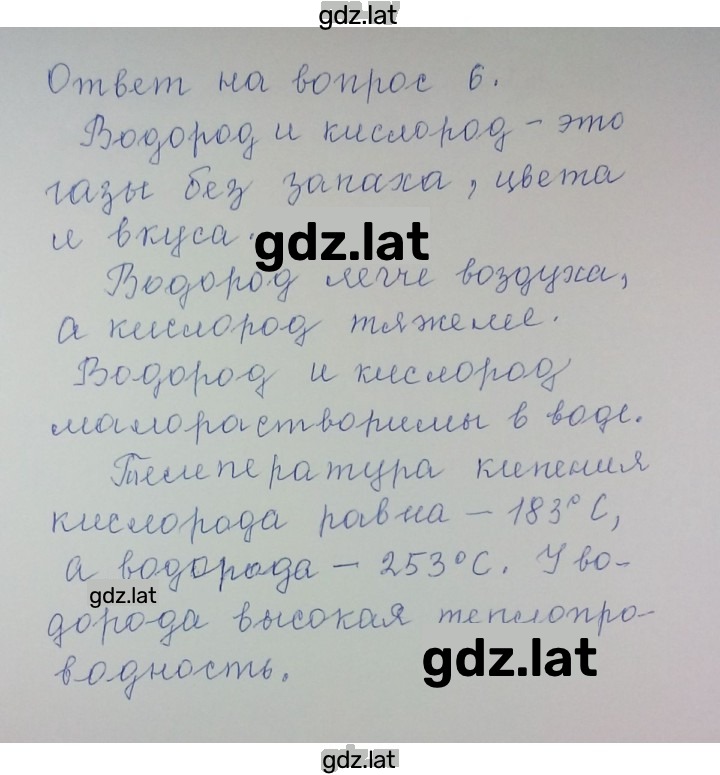 gdz.lat
Ответ на вопрос 6.
Водород и кислород - это
газы без запаха, цвета
и вкуса.
gdz.lat
Водород легче воздуха,
а кислород тяжелее.
Водород и кислород
малорастворимы в воде.
Температура кипения
кислорода равна - 183°С,
а водорода - 253°С. У во-
gdz.lat
дорода высокая теплопро-
водность.
gdz.lat
gdz.lat